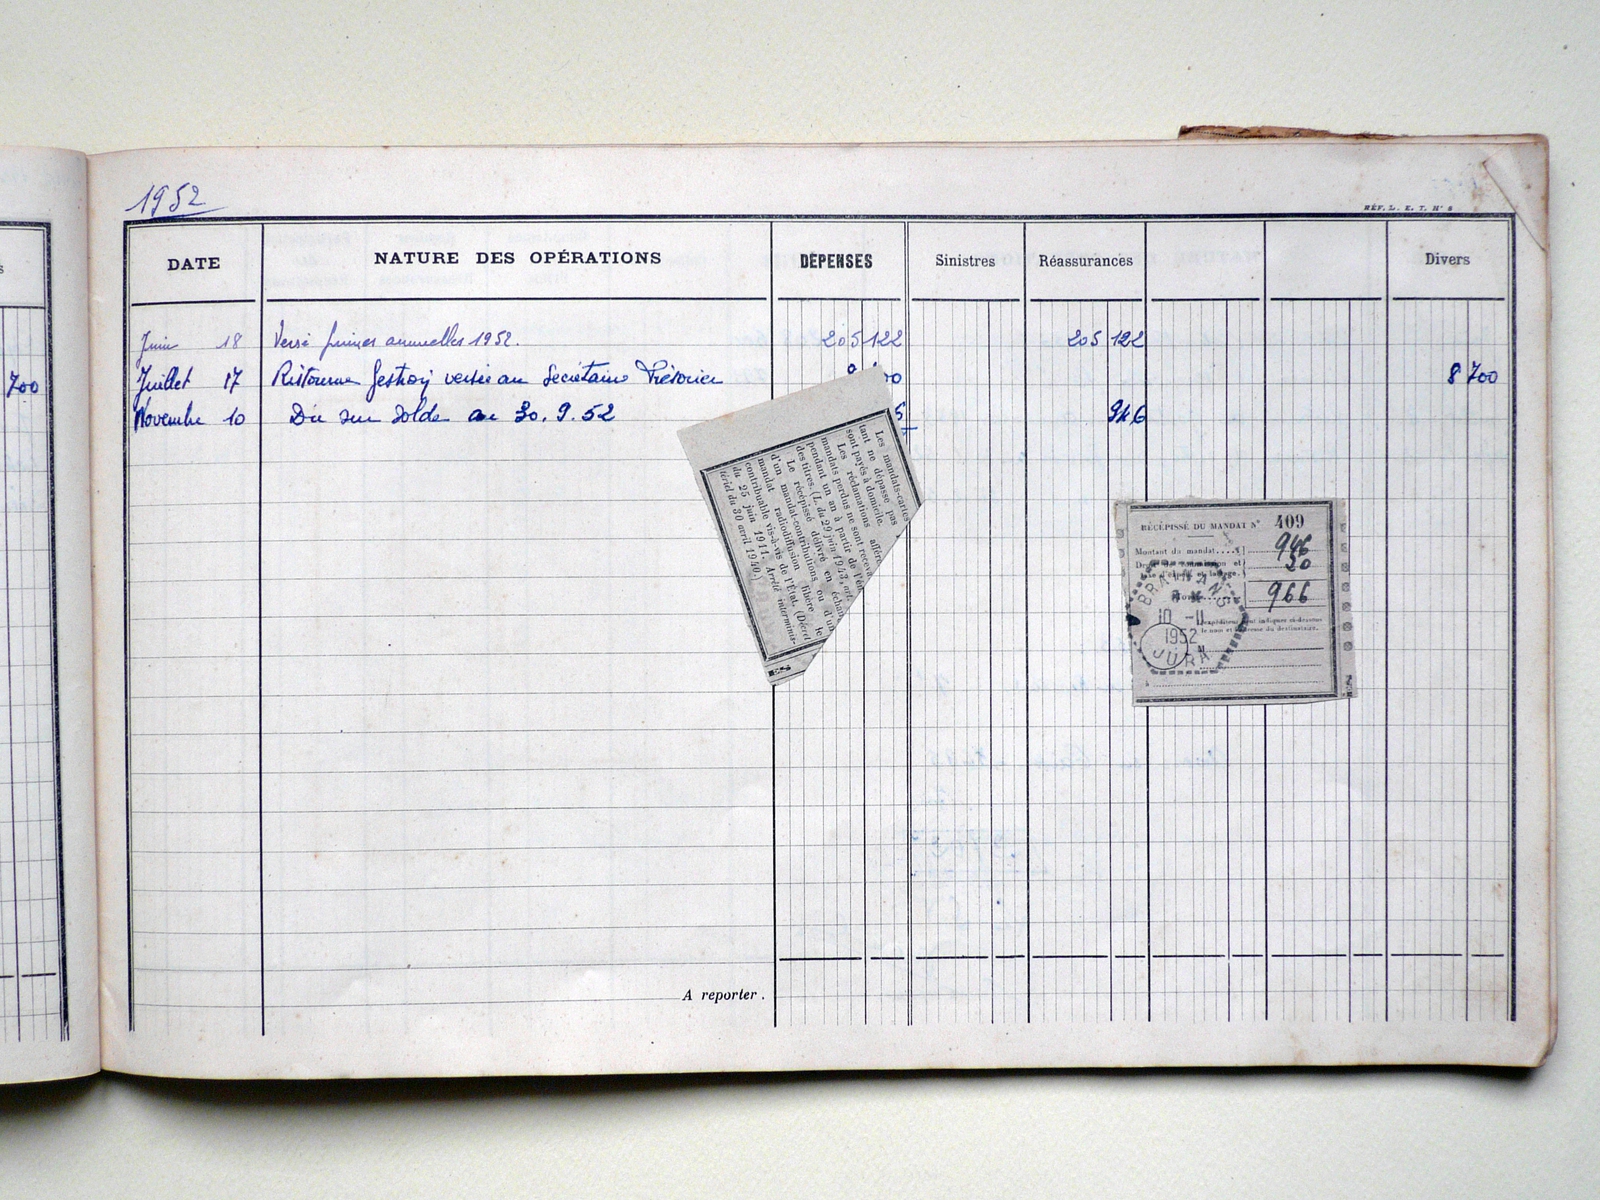 1952
RÉF. L. E. T. N° 6
DATE NATURE DES OPÉRATIONS DÉPENSES Sinistres Réassurances Divers
Juin 18 Versé primes annuelles 1952. 205 122 205 122
700
Juillet 17 Ristourne Gestion versée au Secrétaire Trésorier 8 700
Novembre 10 Dû sur solde au 30.9.52 946
Les mandats-cartes
tant ne dépasse pas
sont payés à domicile.
Les réclamations
mandats perdus ne sont
pendant un an à partir de
des titres. (L. du 29 juin 1943, art.
Le récépissé délivré en
d'un mandat-contributions ou d'un
mandat radiodiffusion libère le
contribuable vis-à-vis de l'État. (Décret
du 25 juin 1911. Arrêté interminis-
tériel du 30 avril 1940.)
RÉCÉPISSÉ DU MANDAT N° 409
Montant du mandat.... 946
20
966
BRAINANS
10 -11
1952
JURA
A reporter .